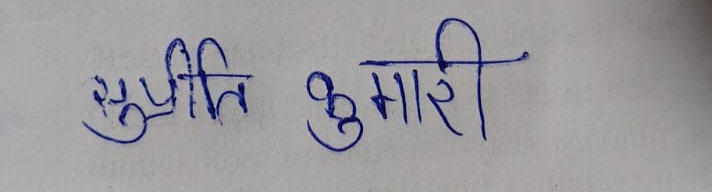 सुप्रीति कुमारी